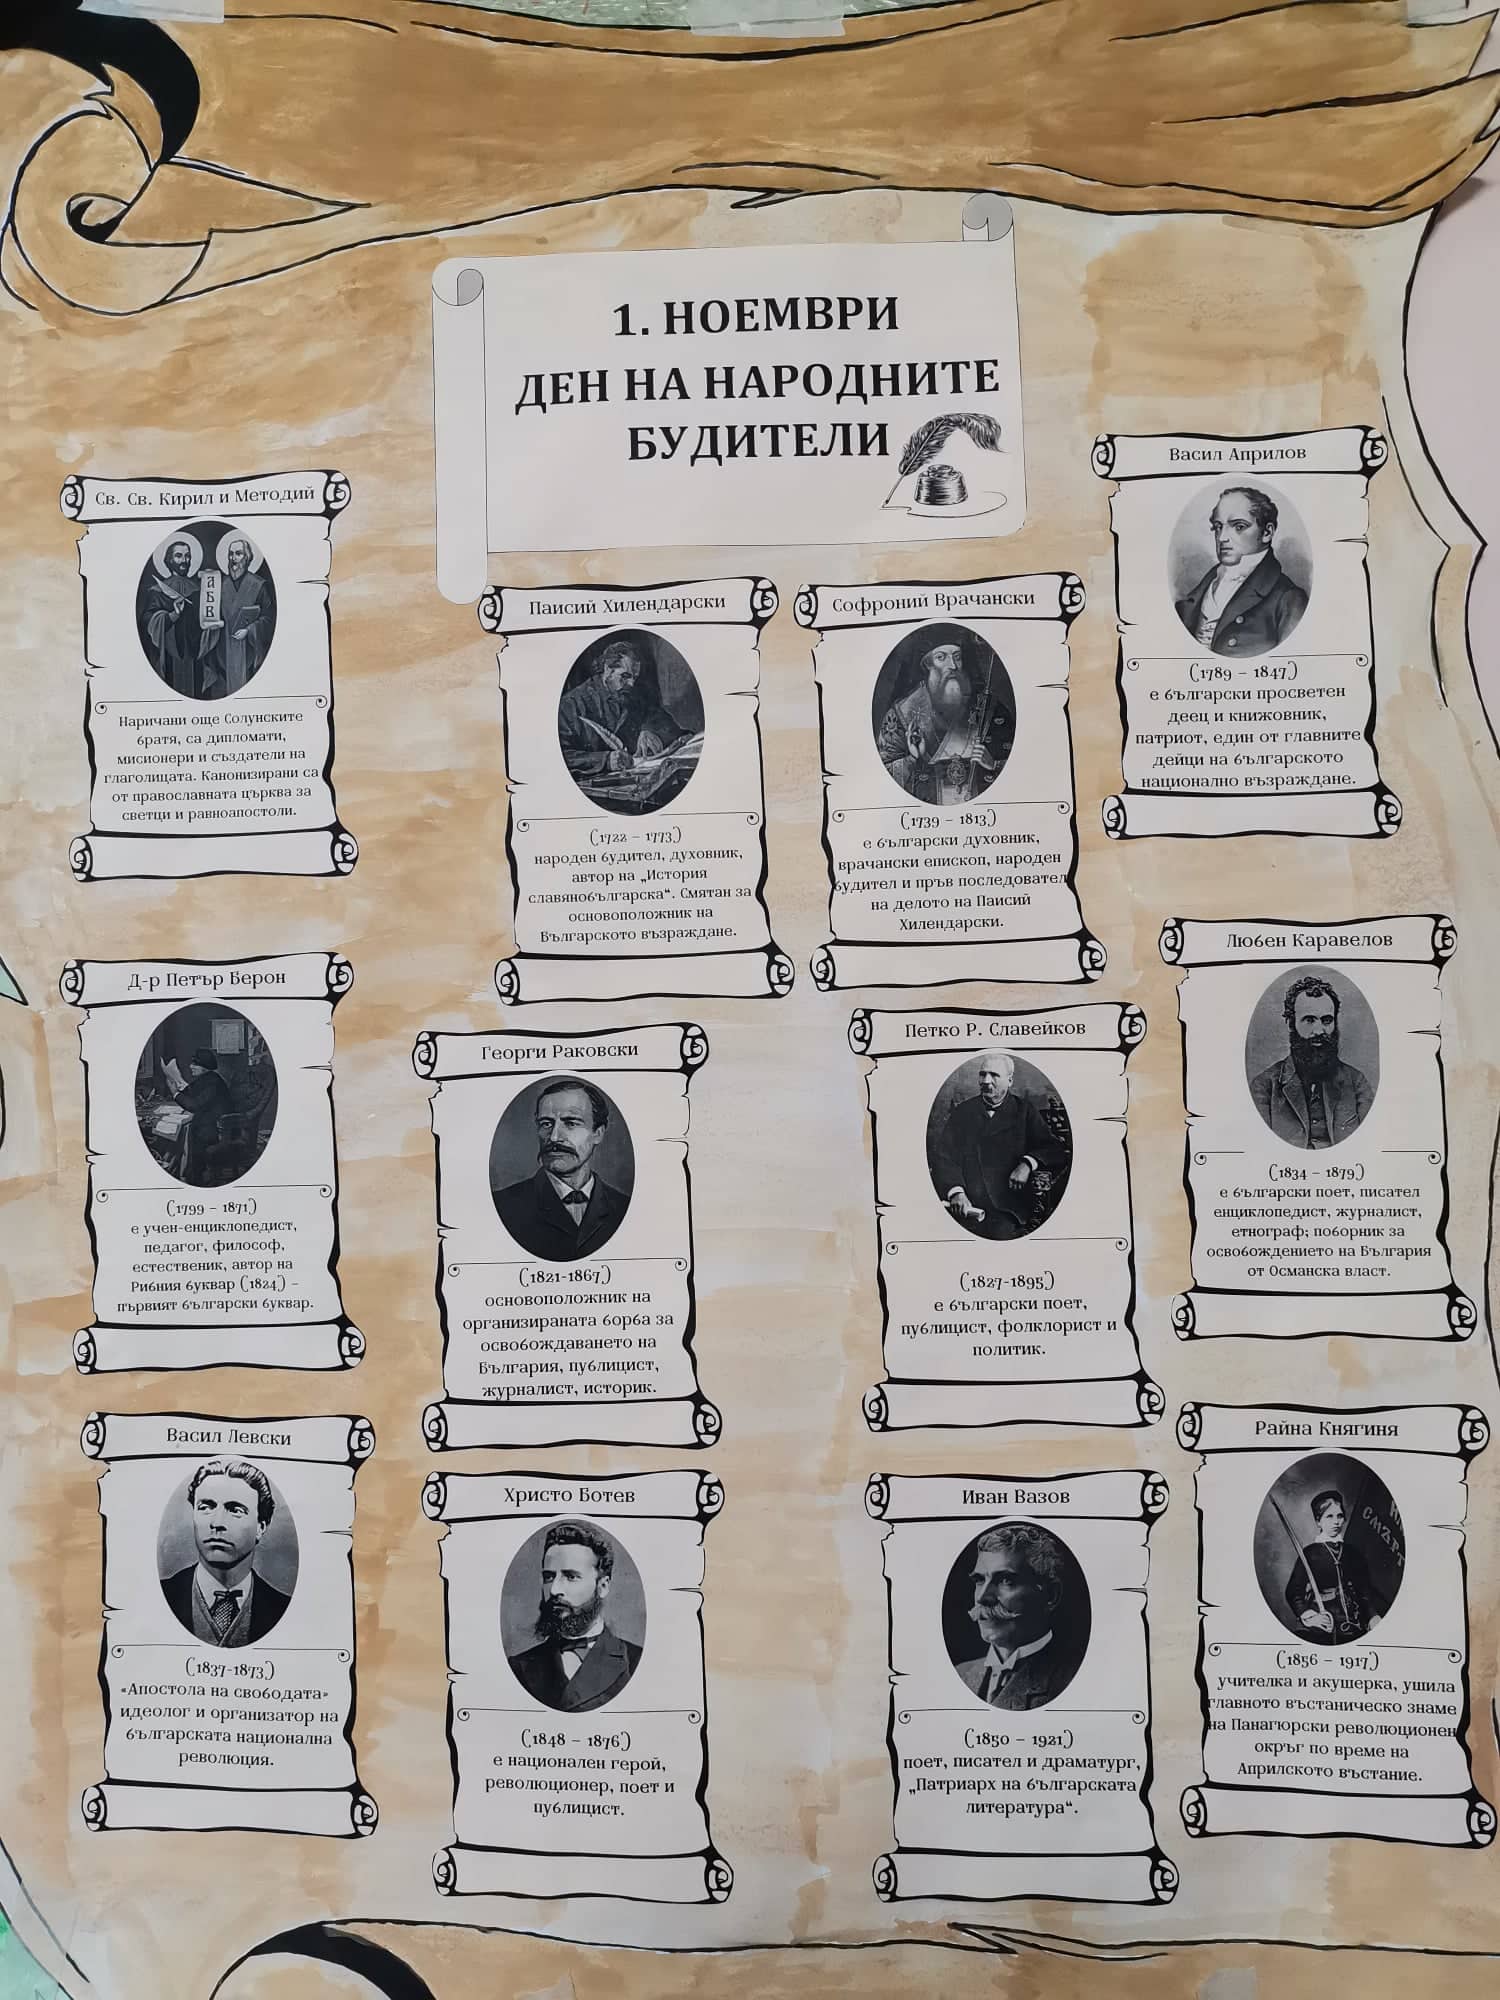 1. НОЕМВРИ
ДЕН НА НАРОДНИТЕ
БУДИТЕЛИ
Св. Св. Кирил и Методий
А
Б
В
Наричани още Солунските
братя, са дипломати,
мисионери и създатели на
глаголицата. Канонизирани са
от православната църква за
светци и равноапостоли.
Паисий Хилендарски
(1722 – 1773)
народен будител, духовник,
автор на „История
славянобългарска“. Смятан за
основоположник на
Българското възраждане.
Софроний Врачански
(1739 – 1813)
е български духовник,
врачански епископ, народен
будител и пръв последовател
на делото на Паисий
Хилендарски.
Васил Априлов
(1789 – 1847)
е български просветен
деец и книжовник,
патриот, един от главните
дейци на българското
национално възраждане.
Д-р Петър Берон
(1799 – 1871)
е учен-енциклопедист,
педагог, философ,
естественик, автор на
Рибния буквар (1824) –
първият български буквар.
Георги Раковски
(1821-1867)
основоположник на
организираната борба за
освобождаването на
България, публицист,
журналист, историк.
Петко Р. Славейков
(1827-1895)
е български поет,
публицист, фолклорист и
политик.
Любен Каравелов
(1834 – 1879)
е български поет, писател
енциклопедист, журналист,
етнограф; поборник за
освобождението на България
от Османска власт.
Васил Левски
(1837-1873)
«Апостола на свободата»
идеолог и организатор на
българската национална
революция.
Христо Ботев
(1848 – 1876)
е национален герой,
революционер, поет и
публицист.
Иван Вазов
(1850 – 1921)
поет, писател и драматург,
„Патриарх на българската
литература“.
Райна Княгиня
СМЪРТ
(1856 – 1917)
учителка и акушерка, ушила
главното въстаническо знаме
на Панагюрски революционен
окръг по време на
Априлското въстание.